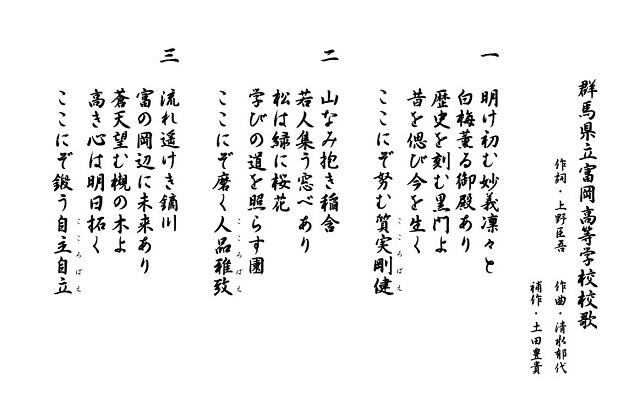 群馬県立富岡高等学校校歌
作詞・上野臣吾
作曲・清水郁代
補作・土田豊貴
一
明け初む妙義凛々と
白梅薫る御殿あり
歴史を刻む黒門よ
昔を偲び今を生く
ここにぞ努む質実剛健
こころばえ
二
山なみ抱き稲含
若人集う窓べあり
松は緑に桜花
学びの道を照らす園
ここにぞ磨く人品雅致
こころばえ
三
流れ遥けき鏑川
富の岡辺に未来あり
蒼天望む槻の木よ
高き心は明日拓く
ここにぞ鍛う自主自立
こころばえ